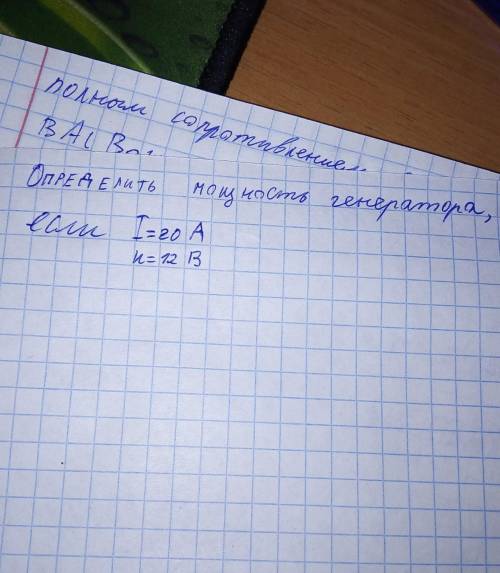 полным сопротивлением
ВАС В
Определить мощность генератора,
если I=20 А
u=12 В